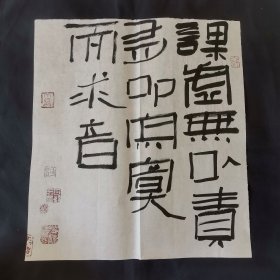 課虛無以責
有叩寂寞
而求音